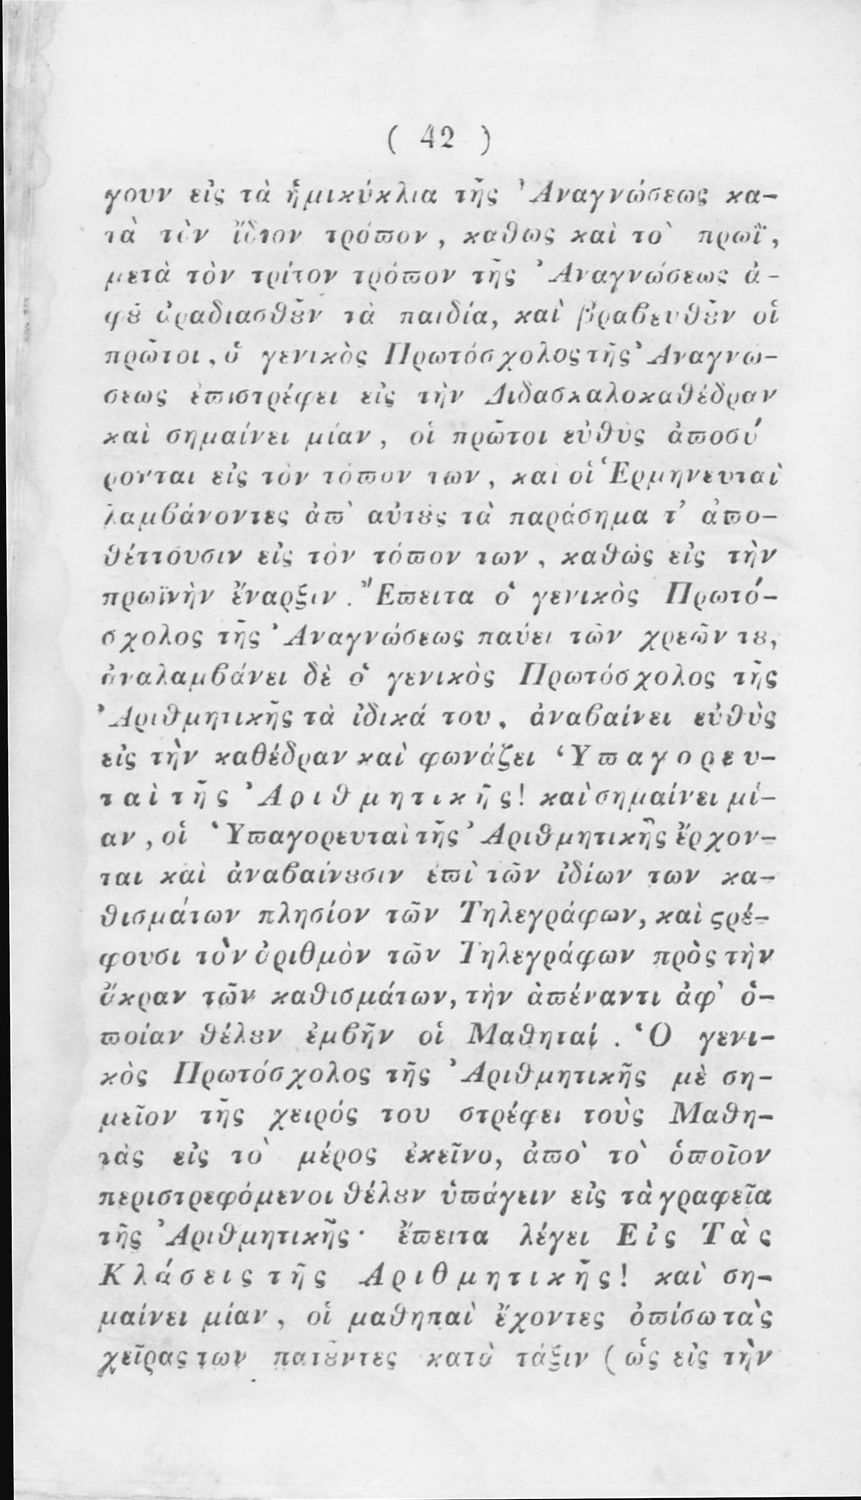 ( 42 )
γουν εἰς τὰ ἡμικύκλια τῆς Ἀναγνώσεως κα-
τὰ τὸν ἴδιον τρόπον, καθὼς καὶ τὸ πρωῒ,
μετὰ τὸν τρίτον τρόπον τῆς Ἀναγνώσεως ἀ-
φȣ͂ ἀραδιασθȣ͂ν τὰ παιδία, καὶ βραβευθȣ͂ν οἱ
πρῶτοι, ὁ γενικὸς Πρωτόσχολος τῆς Ἀναγνώ-
σεως ἐπιστρέφει εἰς τὴν Διδασκαλοκαθέδραν
καὶ σημαίνει μίαν, οἱ πρῶτοι εὐθὺς ἀποσύ
ρονται εἰς τὸν τόπον των, καὶ οἱ Ἑρμηνευταὶ
λαμβάνοντες ἀπ' αὐτȣ̀ς τὰ παράσημα τ' ἀπο-
θέττουσιν εἰς τὸν τόπον των, καθὼς εἰς τὴν
πρωϊνὴν ἔναρξιν. Ἔπειτα ὁ γενικὸς Πρωτό-
σχολος τῆς Ἀναγνώσεως παύει τῶν χρεῶν τȣ,
ἀναλαμβάνει δὲ ὁ γενικὸς Πρωτόσχολος τῆς
Ἀριθμητικῆς τὰ ἰδικά του, ἀναβαίνει εὐθὺς
εἰς τὴν καθέδραν καὶ φωνάζει Ὑπαγορευ-
ταὶ τῆς Ἀριθμητικῆς! καὶ σημαίνει μί-
αν, οἱ Ὑπαγορευταὶ τῆς Ἀριθμητικῆς ἔρχον-
ται καὶ ἀναβαίνȣσιν ἐπὶ τῶν ἰδίων των κα-
θισμάτων πλησίον τῶν Τηλεγράφων, καὶ ϛρέ-
φουσι τὸν ἀριθμὸν τῶν Τηλεγράφων πρὸς τὴν
ἄκραν τῶν καθισμάτων, τὴν ἀπέναντι ἀφ' ὁ-
ποίαν θέλȣν ἐμβῆν οἱ Μαθηταί. Ὁ γενι-
κὸς Πρωτόσχολος τῆς Ἀριθμητικῆς μὲ ση-
μεῖον τῆς χειρός του στρέφει τοὺς Μαθη-
τὰς εἰς τὸ μέρος ἐκεῖνο, ἀπὸ τὸ ὁποῖον
περιστρεφόμενοι θέλȣν ὑπάγειν εἰς τὰ γραφεῖα
τῆς Ἀριθμητικῆς· ἔπειτα λέγει Εἰς Τὰς
Κλάσεις τῆς Ἀριθμητικῆς! καὶ ση-
μαίνει μίαν, οἱ μαθηπαὶ ἔχοντες ὀπίσω τὰς
χεῖρας των πατȣ͂ντες κατὰ τάξιν (ὡς εἰς τὴν